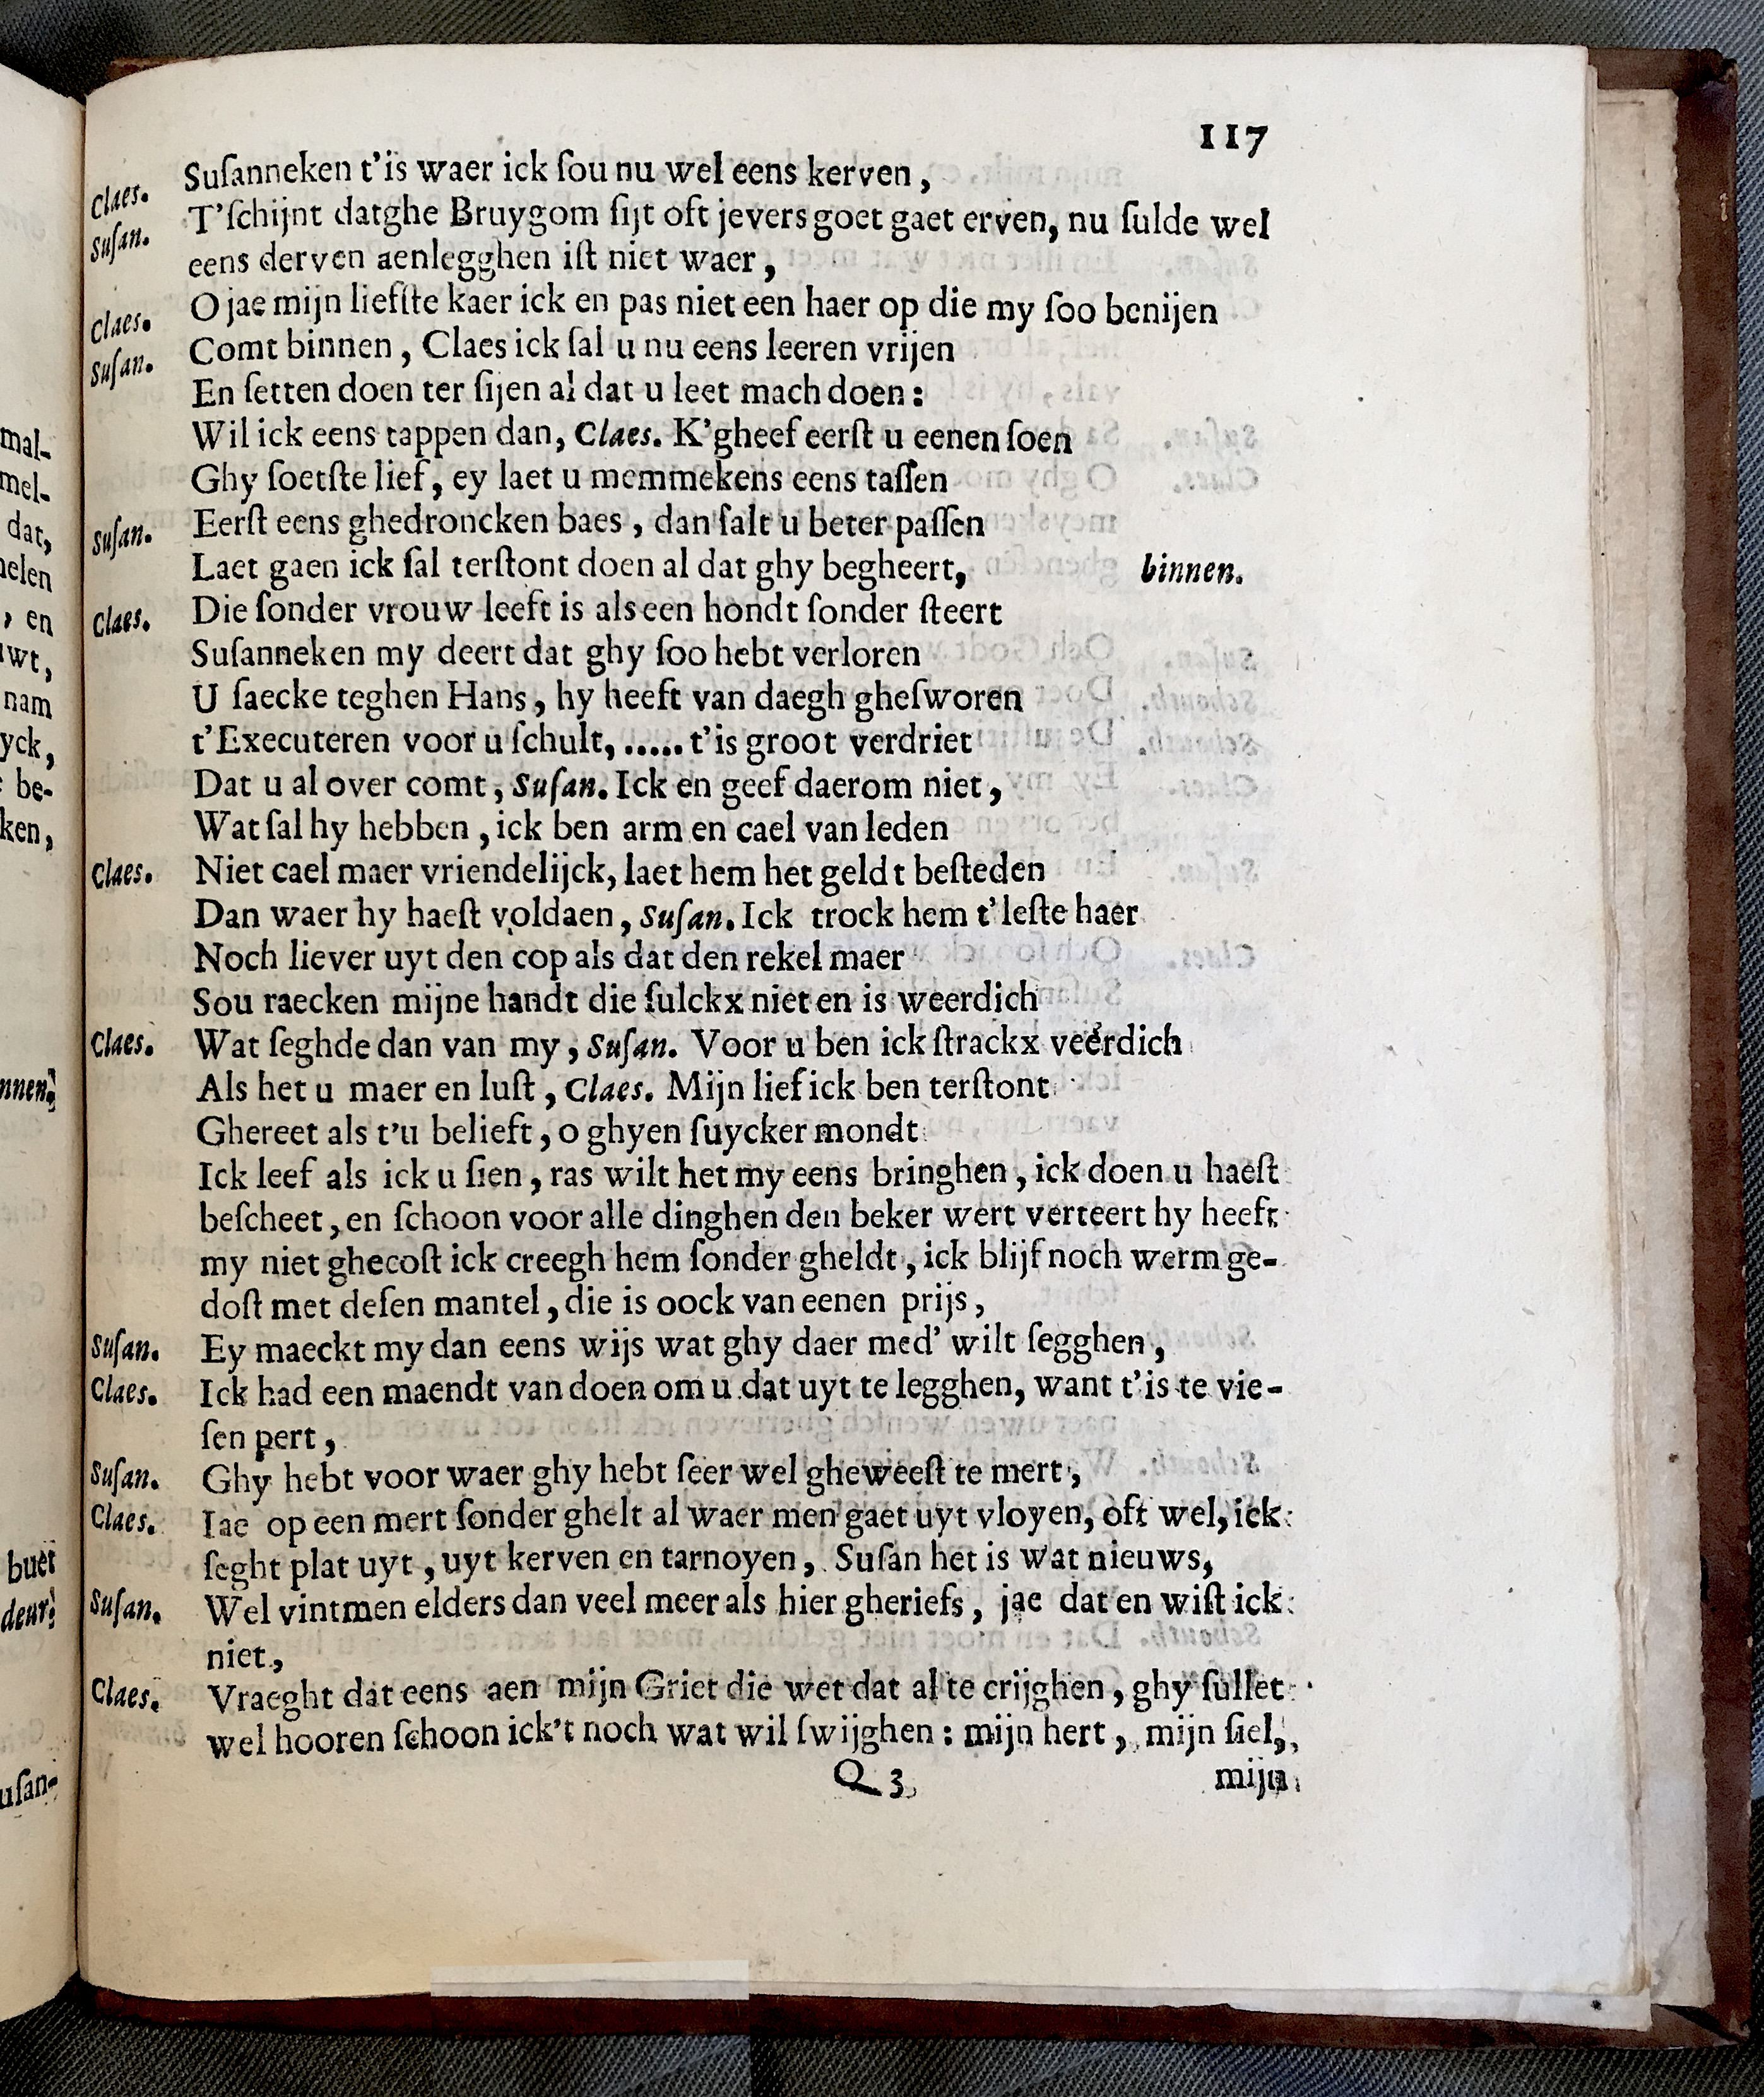 117
Claes. Suſanneken t'is waer ick ſou nu wel eens kerven,
Suſan. T'ſchijnt datghe Bruygom ſijt oft jevers goet gaet erven, nu ſulde wel
eens derven aenlegghen iſt niet waer,
Claes. O jae mijn liefſte kaer ick en pas niet een haer op die my ſoo benijen
Suſan. Comt binnen, Claes ick ſal u nu eens leeren vrijen
En ſetten doen ter ſijen al dat u leet mach doen:
Wil ick eens tappen dan, Claes. K'gheef eerſt u eenen ſoen
Ghy ſoetſte lief, ey laet u memmekens eens taſſen
Suſan. Eerſt eens ghedroncken baes, dan ſalt u beter paſſen
Laet gaen ick ſal terſtont doen al dat ghy begheert, binnen.
Claes. Die ſonder vrouw leeft is als een hondt ſonder ſteert
Suſanneken my deert dat ghy ſoo hebt verloren
U ſaecke teghen Hans, hy heeft van daegh gheſworen
t'Executeren voor u ſchult, ..... t'is groot verdriet
Dat u al over comt, Suſan. Ick en geef daerom niet,
Wat ſal hy hebben, ick ben arm en cael van leden
Claes. Niet cael maer vriendelijck, laet hem het geldt beſteden
Dan waer hy haeſt voldaen, Suſan. Ick trock hem t'leſte haer
Noch liever uyt den cop als dat den rekel maer
Sou raecken mijne handt die ſulckx niet en is weerdich
Claes. Wat ſeghde dan van my, Suſan. Voor u ben ick ſtrackx veerdich
Als het u maer en luſt, Claes. Mijn lief ick ben terſtont
Ghereet als t'u belieft, o ghyen ſuycker mondt
Ick leef als ick u ſien, ras wilt het my eens bringhen, ick doen u haeſt
beſcheet, en ſchoon voor alle dinghen den beker wert verteert hy heeft
my niet ghecoſt ick creegh hem ſonder gheldt, ick blijf noch werm ge-
doſt met deſen mantel, die is oock van eenen prijs,
Suſan. Ey maeckt my dan eens wijs wat ghy daer med' wilt ſegghen,
Claes. Ick had een maendt van doen om u dat uyt te legghen, want t'is te vie-
ſen pert,
Suſan. Ghy hebt voor waer ghy hebt ſeer wel gheweeſt te mert,
Claes. Iae op een mert ſonder ghelt al waer men gaet uyt vloyen, oft wel, ick
ſeght plat uyt, uyt kerven en tarnoyen, Suſan het is wat nieuws,
Suſan. Wel vintmen elders dan veel meer als hier gheriefs, jae dat en wiſt ick
niet,
Claes. Vraeght dat eens aen mijn Griet die wet dat al te crijghen, ghy ſullet
wel hooren ſchoon ick't noch wat wil ſwijghen: mijn hert, mijn ſiel,
Q 3 mijn
mal-
mel-
dat,
elen
, en
wt,
nam
yck,
be-
ken,
nnen.
buer
deur.
uſan-